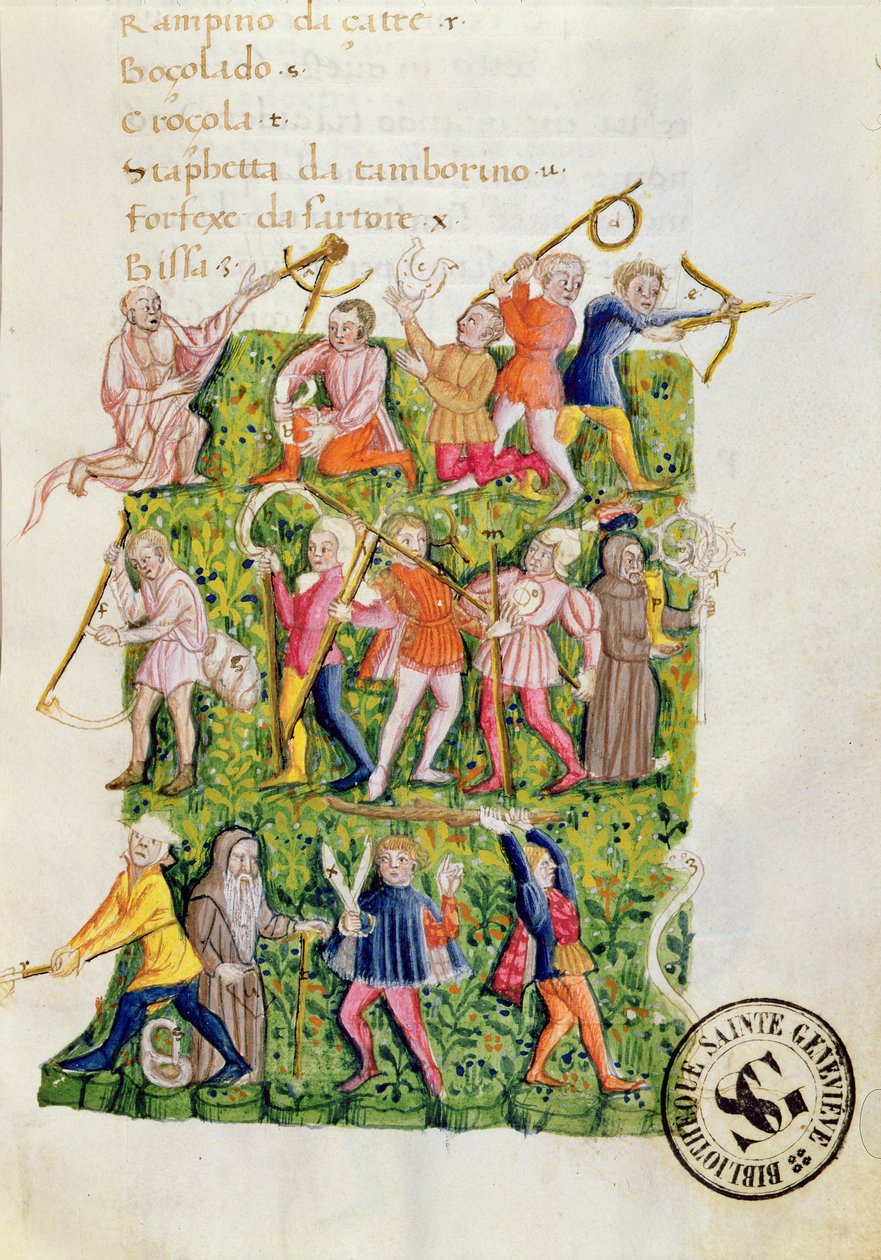 Rampino da çatre · r ·
Boçolado · s ·
Croçola · t ·
Staphetta da tamborino · u ·
Forfexe da sartore · x ·
Bissa · 3 ·
d
c
e
b
f
m
g
p
x
r
s
3
BIBLIOTHEQUE SAINTE GENEVIEVE
SG